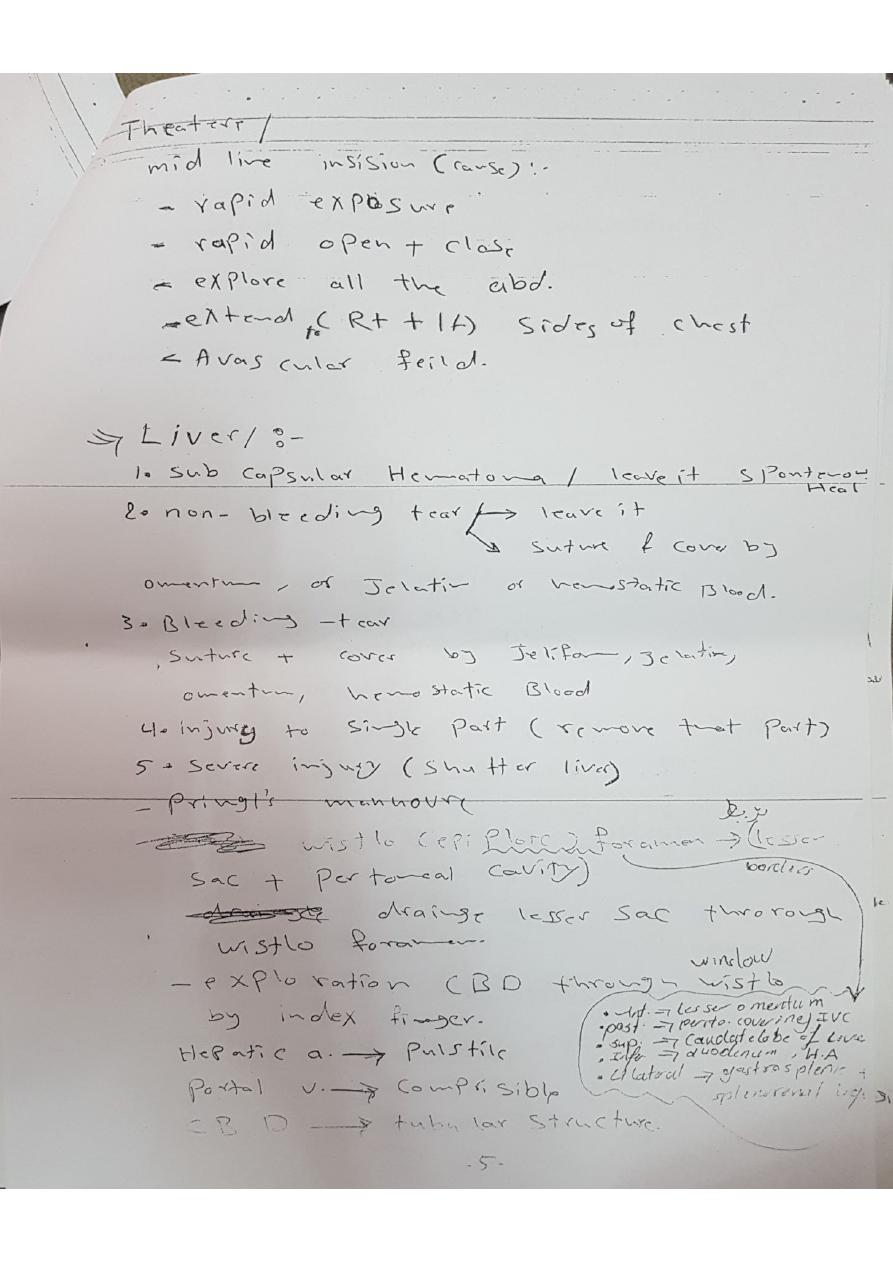 Theaters/
mid live insision (cause):-
- rapid exposure
- rapid open + close
- explore all the abd.
- extend to (Rt + lt) sides of chest
- Avascular feild.
⇒ Liver/ :-
1. Sub capsular Hematoma / leave it Spontenous
Heal
2. non-bleeding tear → leave it
↘ suture & cover by
omentum, or Jelatin or hemostatic Blood.
3. Bleeding -tear
, Suture + cover by Jelifom, Jelatin,
omentum, hemostatic Blood
4. injury to single part (remove that part)
5. severe injury (shutter liver)
- Pringl's manhouvre
يربط
wistlo (epiploic) foramen → (lesser
borders
Sac + Pertoneal cavity)
drainge lesser sac throrough
wistlo foramen.
winslow
- exploration CBD through wistlo
by index finger.
• Ant. → lesser omentum
• post. → perito. covering IVC
• sup. → Caudate lobe of Live
• Infr → duodenum, H.A
• Lt lateral → gastrosplenic +
splenorenal lig.
Hepatic a. → Pulstile
Portal v. → Comprisible
CBD → tubular structure.
-5-